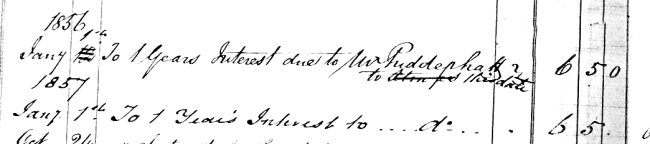 1856
Jany 1st To 1 Years Interest due to Mr Puddephatt
to this date 6 5 0
1857
Jany 1st To 1 Year's Interest to .... do . . 6 5 . 0
Oct 24